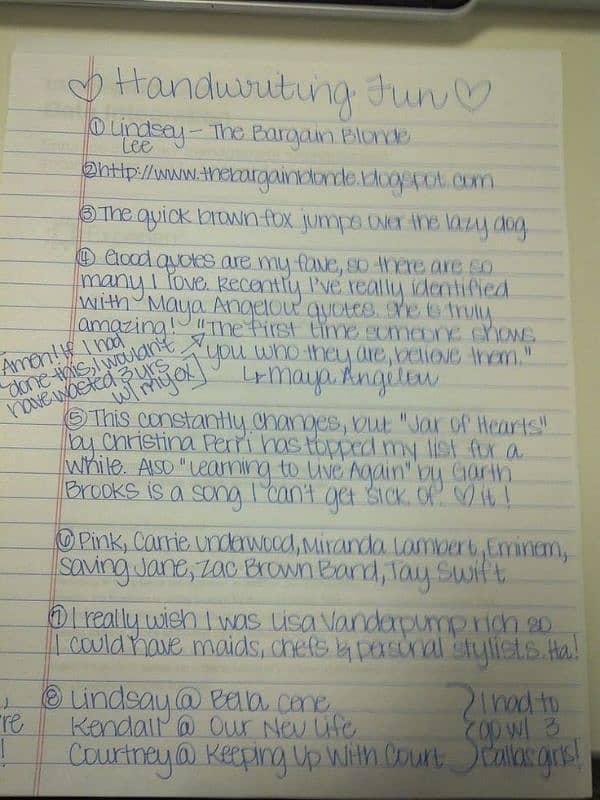 ♡ Handwriting Fun ♡
① Lindsey - The Bargain Blonde
Lee
② http://www.thebargainblonde.blogspot.com
③ The quick brown fox jumps over the lazy dog
④ Good quotes are my fave, so there are so
many I love. Recently I've really identified
with Maya Angelou quotes. She is truly
amazing! "The first time someone shows
you who they are, believe them."
↳ Maya Angelou
Amen! If I had
done this, I wouldn't
have wasted 3 yrs
w/ my ex
⑤ This constantly changes, but "Jar of Hearts"
by Christina Perri has topped my list for a
while. Also "Learning to Live Again" by Garth
Brooks is a song I can't get sick of. ♡ it!
⑥ Pink, Carrie Underwood, Miranda Lambert, Eminem,
Saving Jane, Zac Brown Band, Tay Swift
⑦ I really wish I was Lisa Vanderpump rich so
I could have maids, chefs & personal stylists. Ha!
⑧ Lindsay @ Bella cene
Kendall @ Our New Life
Courtney @ Keeping Up With Court
I had to
go w/ 3
Dallas girls!